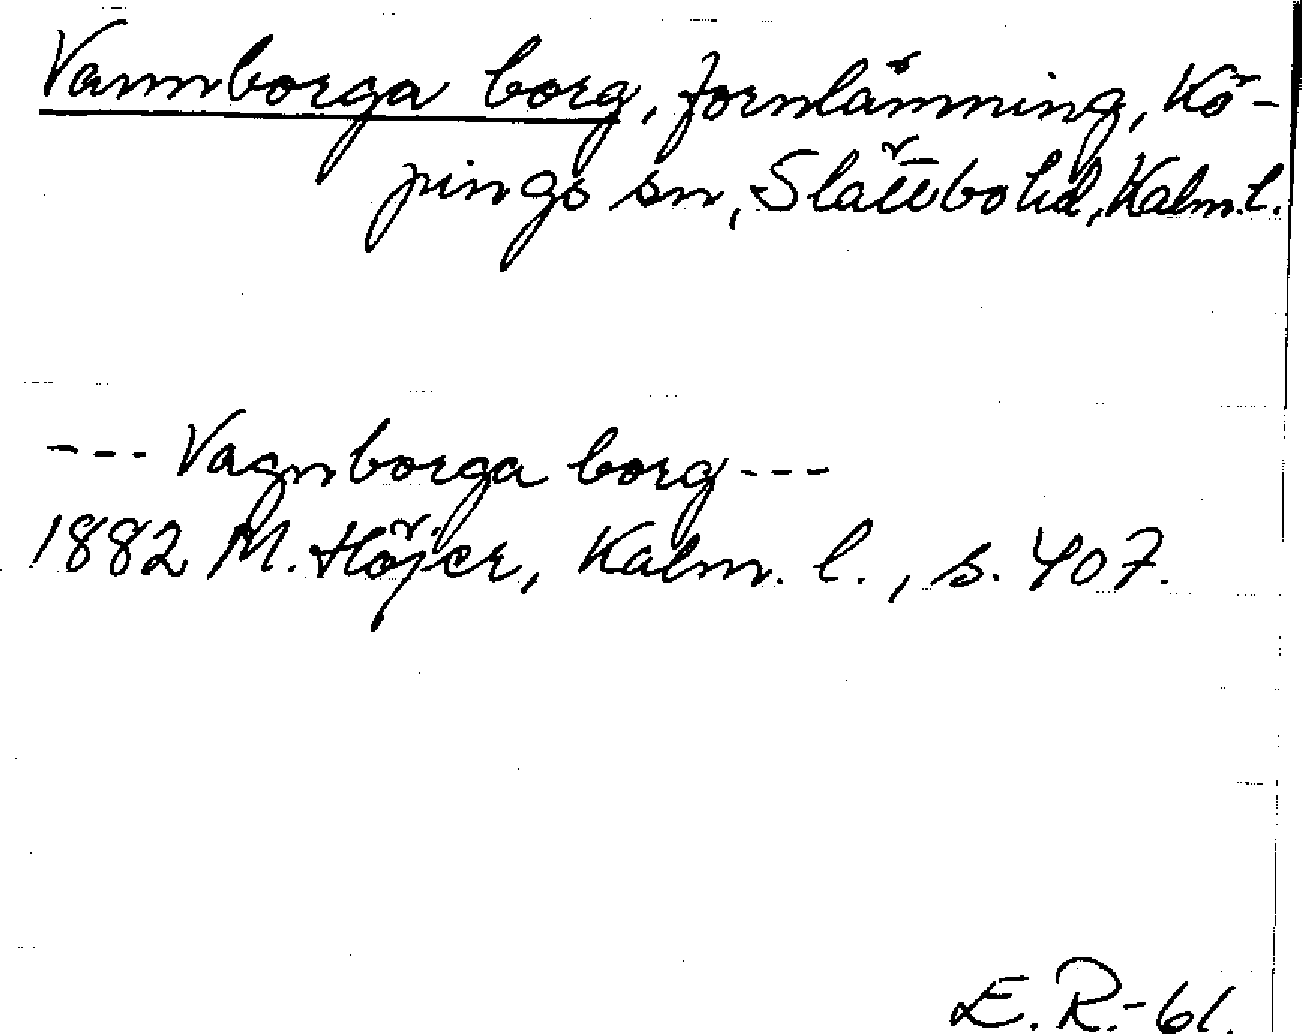 Vannborga borg, fornlämning, Kö-
pings sn, Slättbo hd, Kalm. l.
--- Vagnborga borg ---
1882 M. Höjer, Kalm. l., s. 407.
E. R. - 61.